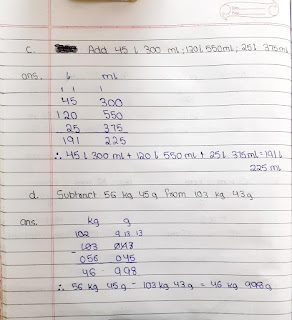 c. Add 45 l 300 ml ; 120 l 550 ml ; 25 l 375 ml
ans. l ml
1 1 1
45 300
120 550
25 375
191 225
∴ 45 l 300 ml + 120 l 550 ml + 25 l 375 ml = 191 l
225 ml
d. Subtract 56 kg 45 g from 103 kg 43 g
ans. kg g
102 9 13 13
103 043
- 056 045
46 998
∴ 56 kg 45 g - 103 kg 43 g = 46 kg 998 g